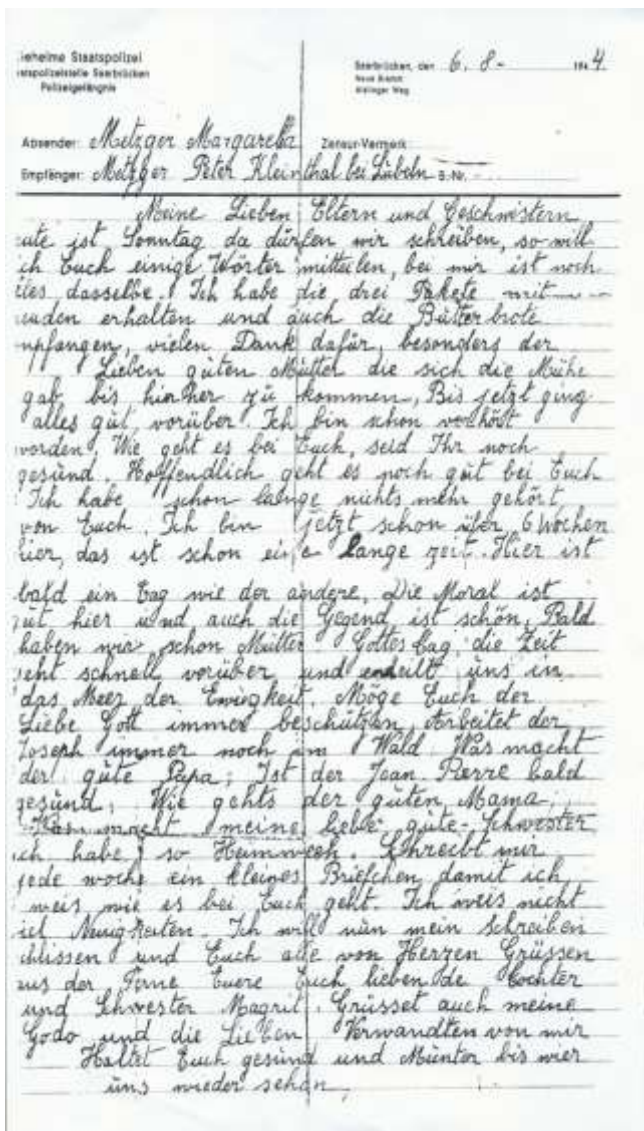 eheime Staatspolizei
atspolizeistelle Saarbrücken
Polizeigefängnis
Saarbrücken, den 6. 8 - 194 4.
Neue Bremm
Alstinger Weg
Absender: Metzger Margaretha Zensur-Vermerk:
Empfänger: Metzger Peter Kleinthal bei Lübeln B.-Nr. -
Meine Lieben Eltern und Geschwistern
eute ist Sonntag da dürfen wir schreiben, so will
ich Euch einige Wörter mitteilen, bei mir ist noch
lles dasselbe. Ich habe die drei Pakete mit
euden erhalten und auch die Butterbrote
mpfangen, vielen Dank dafür, besonders der
Lieben guten Mutter die sich die Mühe
gab bis hierher zu kommen, Bis jetzt ging
alles gut vorüber. Ich bin schon verhört
worden, Wie geht es bei Euch, seid Ihr noch
gesund. Hoffendlich geht es noch gut bei Euch
Ich habe schon lange nichts mehr gehört
von Euch. Ich bin jetzt schon über 6 Wochen
hier, das ist schon eine lange zeit. Hier ist
bald ein Tag wie der andere, Die Moral ist
gut hier und auch die Gegend ist schön, Bald
haben wir schon Mutter Gottes tag, die Zeit
geht schnell vorüber und enteilt uns in
das Meer der Ewigkeit. Möge Euch der
Liebe Gott immer beschützen, Arbeitet der
Joseph immer noch im Wald Was macht
der gute Papa; Ist der Jean-Pierre bald
gesund; Wie gehts der guten Mama;
Was macht meine liebe gute Schwester
ich habe so Heimweh. Schreibt mir
jede woche ein kleines Briefchen damit ich
weis wie es bei Euch geht. Ich weis nicht
iel Neuigkeiten. Ich will nun mein Schreiben
chlissen und Euch alle von Herzen Grüssen
aus der Ferne Euere Euch liebende tochter
und Schwester Magrit. Grüsset auch meine
Godo und die Lieben Verwandten von mir
Haltet Euch gesund und Munter bis wier
uns wieder sehen,